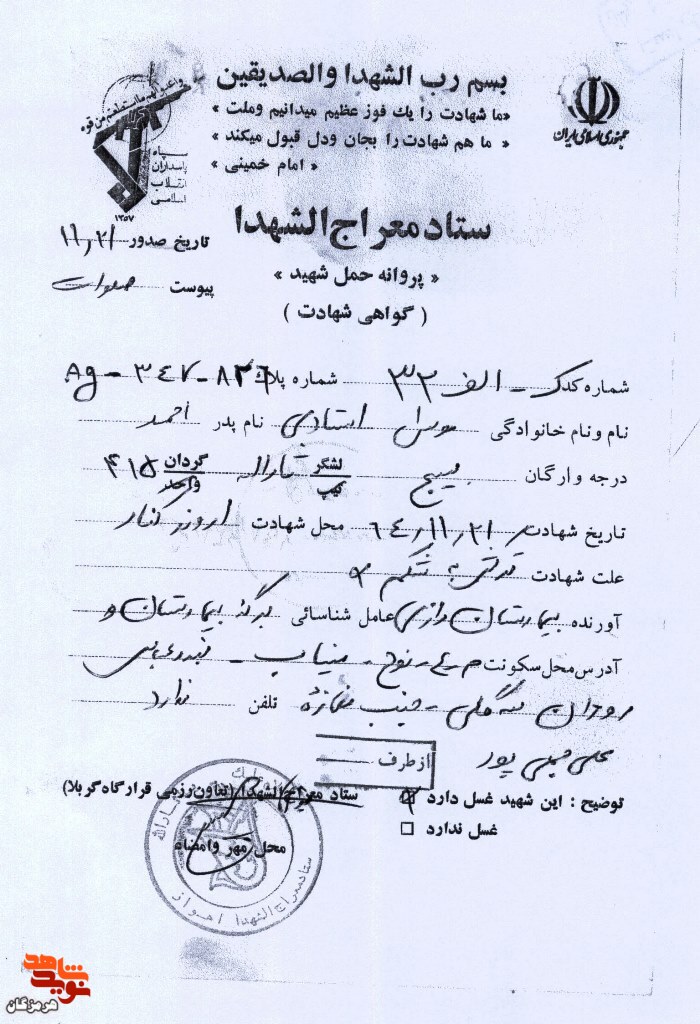 بسم رب الشهدا والصدیقین
«ما شهادت را یك فوز عظیم میدانیم وملت »
« ما هم شهادت را بجان ودل قبول میکند »
« امام خمینی »
جمهوری اسلامی ایران
سپاه
پاسداران
انقلاب
اسلامی
۱۳۵۷
ستاد معراج الشهدا
تاریخ صدور ۱۱٫۲۱
« پروانه حمل شهید »
پیوست
( گواهی شهادت )
شماره کدک - الف ۳۲ شماره پلاك Ag - ۳٤۷-۸۲٦
نام و نام خانوادگی استادی نام پدر احمد
درجه و ارگان بسیج لشگر تیپ ثاراله گردان واحد ۴۱۵
تاریخ شهادت ٦٤٫۱۱٫۲۱ محل شهادت اروند کنار
علت شهادت به شکم
آورنده بیمارستان رازی عامل شناسائی برگه بیمارستان
آدرس محل سکونت میناب
رودان جنب مغازه تلفن ندارد
علی پور
از طرف
توضیح : این شهید غسل دارد
ستاد معراج الشهدا (تعاون رزمی قرارگاه کربلا)
غسل ندارد
محل مهر وامضاء
ستاد معراج الشهدا اهواز
نوید شاهد
هرمزگان